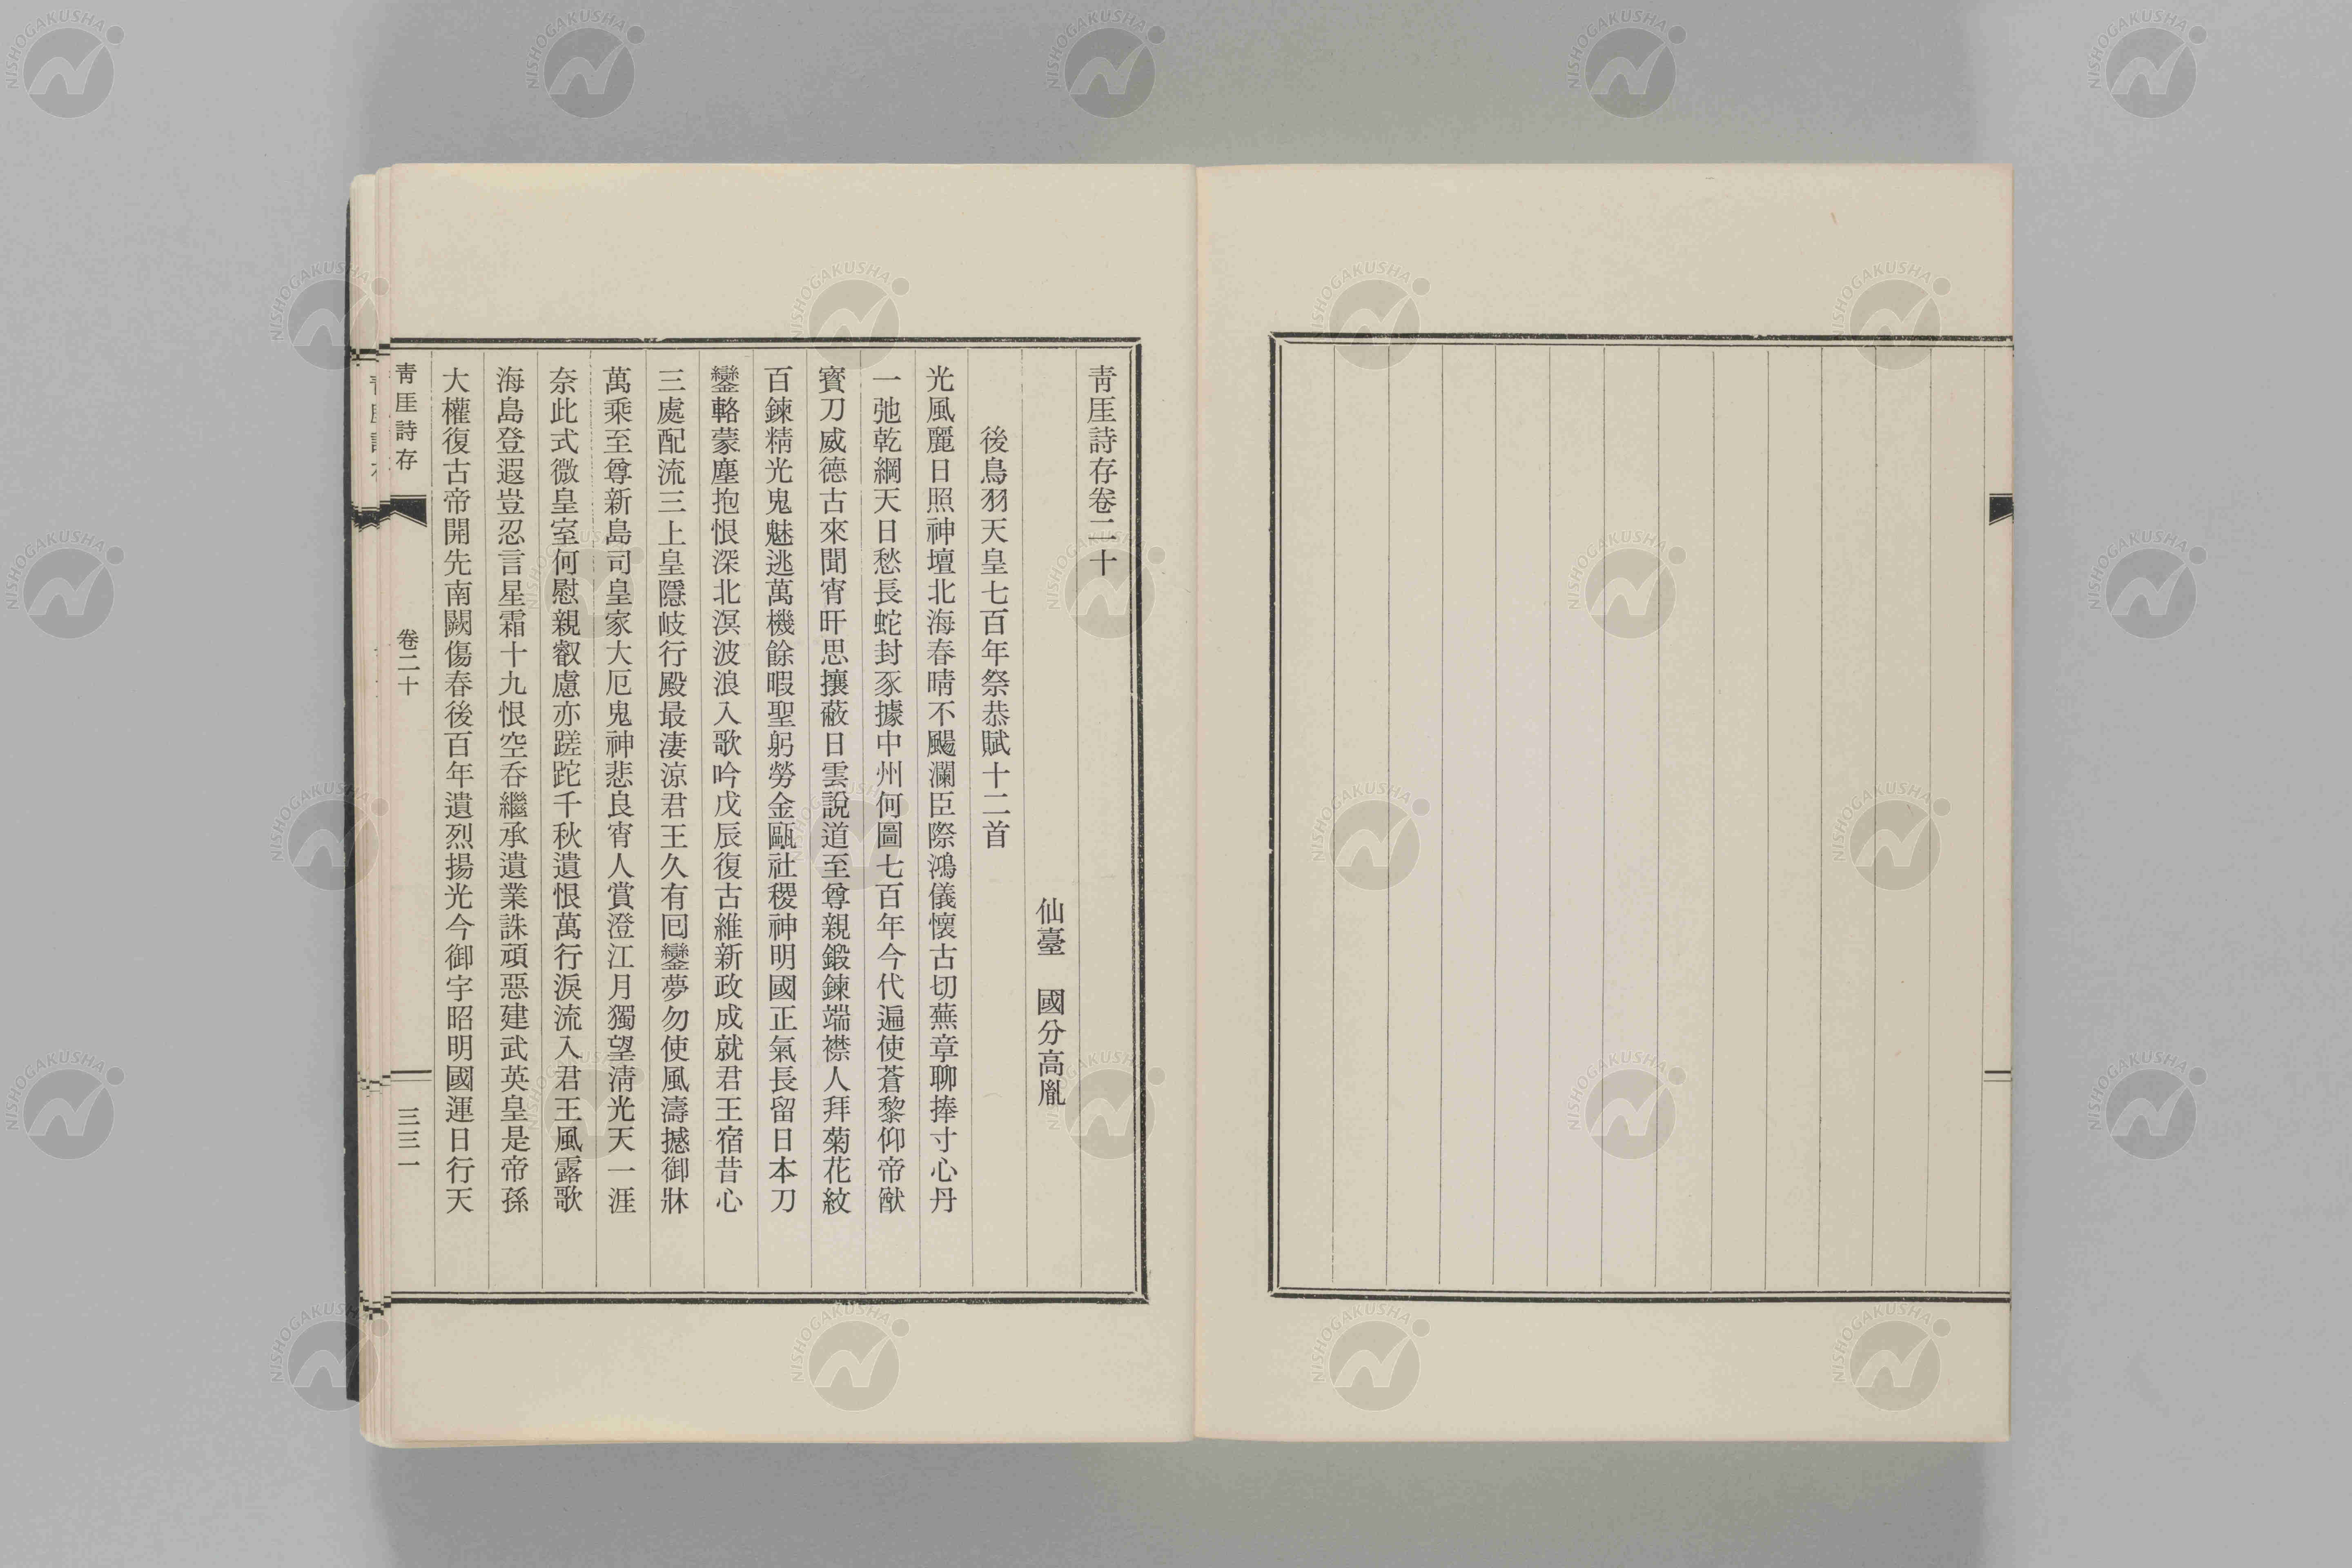 青厓詩存卷二十
仙臺　國分高胤
後鳥羽天皇七百年祭恭賦十二首
光風麗日照神壇北海春晴不颺瀾臣際鴻儀懷古切蕪章聊捧寸心丹
一弛乾綱天日愁長蛇封豕據中州何圖七百年今代遍使蒼黎仰帝猷
寶刀威德古來聞宵旰思攘蔽日雲說道至尊親鍛鍊端襟人拜菊花紋
百鍊精光鬼魅逃萬機餘暇聖躬勞金甌社稷神明國正氣長留日本刀
鑾輅蒙塵抱恨深北溟波浪入歌吟戊辰復古維新政成就君王宿昔心
三處配流三上皇隱岐行殿最淒涼君王久有囘鑾夢勿使風濤撼御牀
萬乘至尊新島司皇家大厄鬼神悲良宵人賞澄江月獨望淸光天一涯
奈此式微皇室何慰親叡慮亦蹉跎千秋遺恨萬行淚流入君王風露歌
海島登遐豈忍言星霜十九恨空呑繼承遺業誅頑惡建武英皇是帝孫
大權復古帝開先南闕傷春後百年遺烈揚光今御宇昭明國運日行天
青厓詩存
卷二十
三三一
NISHOGAKUSHA